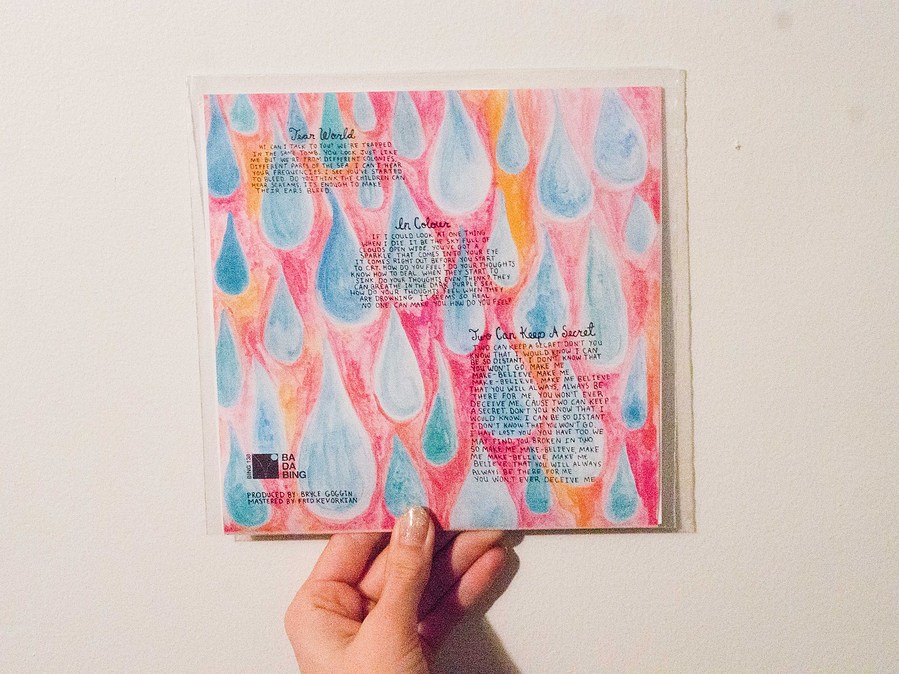 Tear World
HI CAN I TALK TO YOU? WE'RE TRAPPED
IN THE SAME TOMB. YOU LOOK JUST LIKE
ME BUT WE'RE FROM DIFFERENT COLONIES,
DIFFERENT PARTS OF THE SEA. I CAN'T HEAR
YOUR FREQUENCIES. I SEE YOU'VE STARTED
TO BLEED. DO YOU THINK THE CHILDREN CAN
HEAR SCREAMS. ITS ENOUGH TO MAKE
THEIR EARS BLEED.
In Colour
IF I COULD LOOK AT ONE THING
WHEN I DIE IT BE THE SKY FULL OF
CLOUDS OPEN WIDE. YOU'VE GOT A
SPARKLE THAT COMES INTO YOUR EYE
IT COMES RIGHT OUT BEFORE YOU START
TO CRY. HOW DO YOU FEEL? DO YOUR THOUGHTS
KNOW HOW TO DEAL WHEN THEY START TO
SINK. DO YOUR THOUGHTS EVEN THINK? THEY
CAN BREATHE IN THE DARK PURPLE SEA.
HOW DO YOUR THOUGHTS FEEL WHEN THEY
ARE DROWNING. IT SEEMS SO REAL
NO ONE CAN MAKE YOU HOW DO YOU FEEL?
Two Can Keep A Secret
TWO CAN KEEP A SECRET DON'T YOU
KNOW THAT I WOULD KNOW I CAN
BE SO DISTANT, I DON'T KNOW THAT
YOU WON'T GO. MAKE ME
MAKE-BELIEVE, MAKE ME
MAKE-BELIEVE, MAKE ME BELIEVE
THAT YOU WILL ALWAYS, ALWAYS BE
THERE FOR ME. YOU WON'T EVER
DECEIVE ME. CAUSE TWO CAN KEEP
A SECRET, DON'T YOU KNOW THAT I
WOULD KNOW. I CAN BE SO DISTANT
I DON'T KNOW THAT YOU WON'T GO.
I HAVE LOST YOU. YOU HAVE TOO WE
MAY FIND, YOU BROKEN IN TWO
SO MAKE ME MAKE-BELIEVE, MAKE
ME MAKE-BELIEVE, MAKE ME
BELIEVE, THAT YOU WILL ALWAYS
ALWAYS BE THERE FOR ME
YOU WON'T EVER DECEIVE ME
BA
DA
BING
PRODUCED BY: BRYCE GOGGIN
MASTERED BY: FRED KEVORKIAN